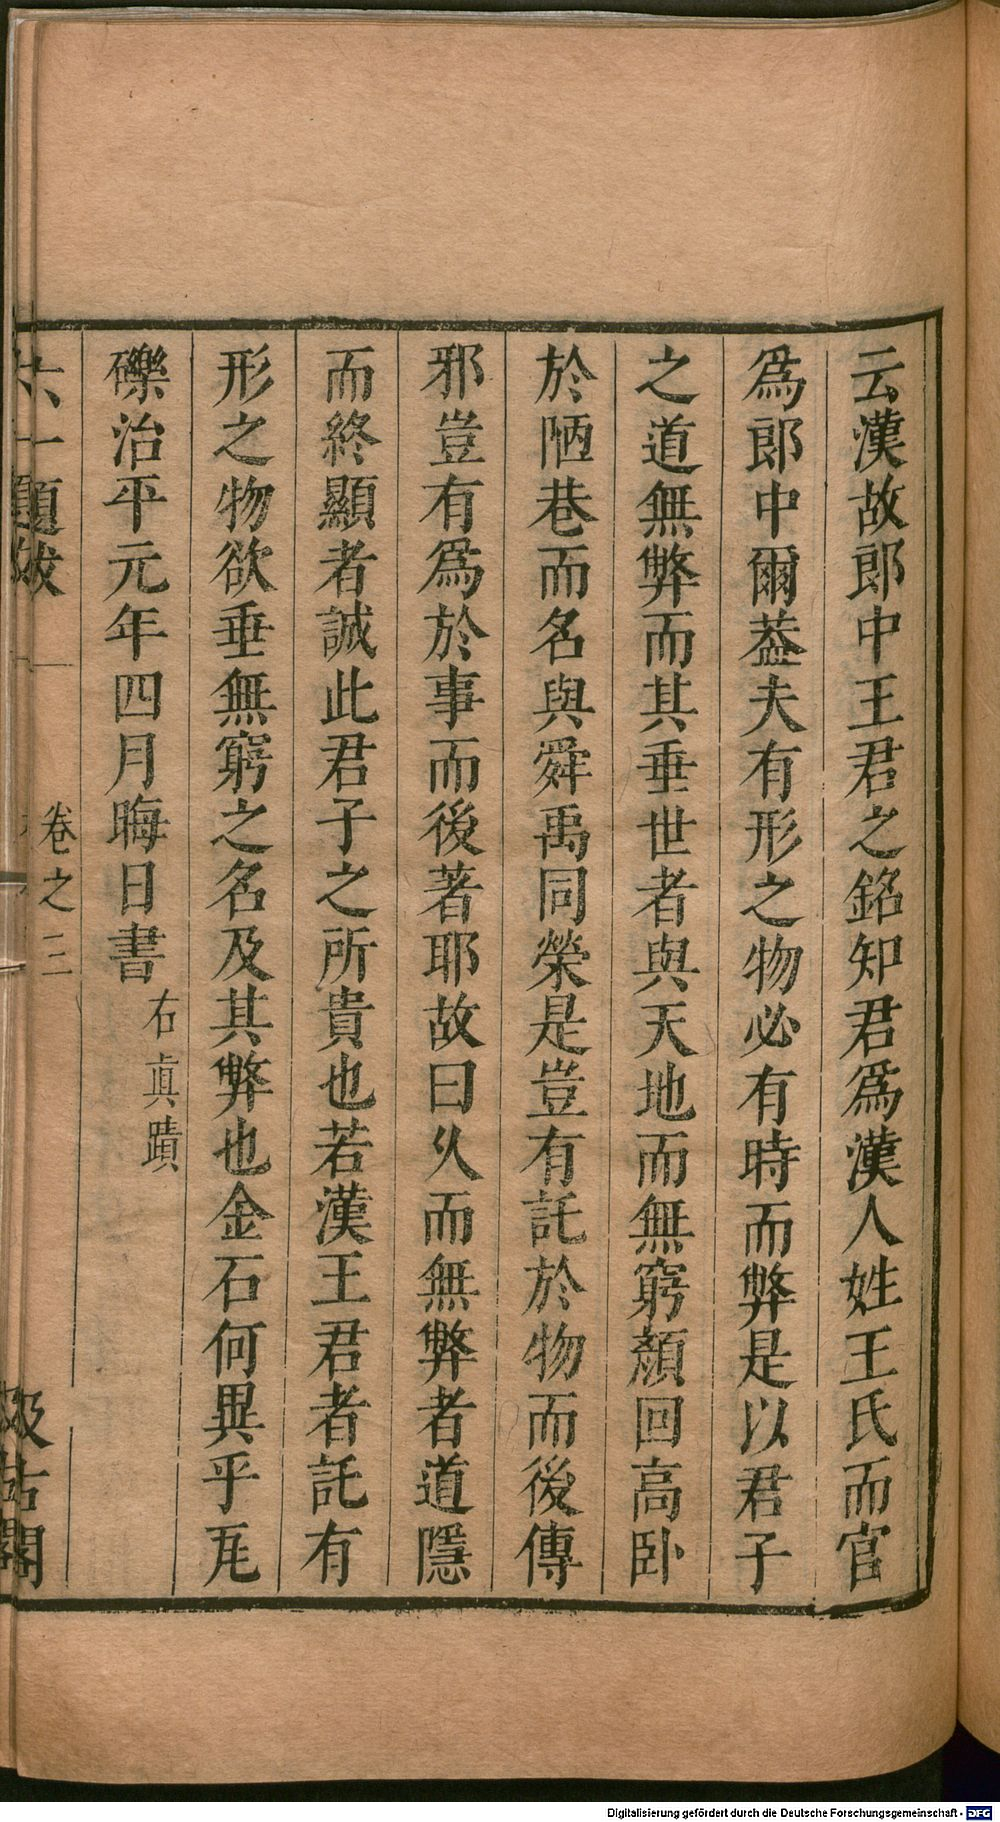 云漢故郎中王君之銘知君爲漢人姓王氏而官
爲郎中爾葢夫有形之物必有時而弊是以君子
之道無弊而其垂世者與天地而無窮顏回高臥
於陋巷而名與舜禹同榮是豈有託於物而後傳
邪豈有爲於事而後著耶故曰久而無弊者道隱
而終顯者誠此君子之所貴也若漢王君者託有
形之物欲垂無窮之名及其弊也金石何異乎瓦
礫治平元年四月晦日書
右眞蹟
六一題跋
卷之三
汲古閣
Digitalisierung gefördert durch die Deutsche Forschungsgemeinschaft - DFG